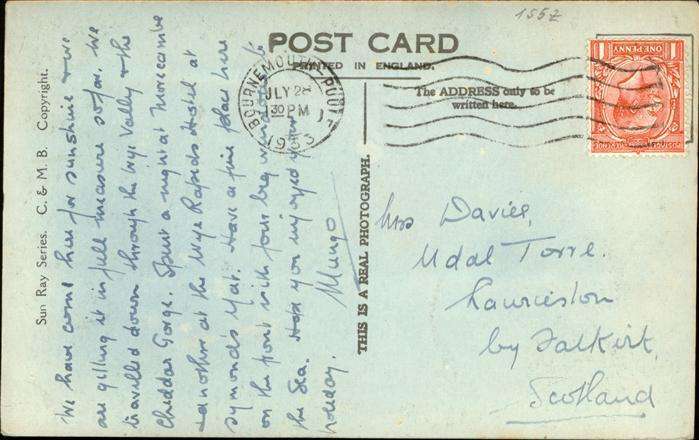 1552
POST CARD
PRINTED IN ENGLAND.
The ADDRESS only to be
written here.
BOURNEMOUTH POOLE
JLY 2
30 PM
1933
ONE PENNY
1 1
Sun Ray Series. C. & M. B. Copyright.
THIS IS A REAL PHOTOGRAPH.
We have come here for sunshine & we
are getting it in full measure so far. We
travelled down through the Wye Valley & the
Cheddar Gorge. Spent a night at Morecambe
& another at the Wye Rapids Hostel at
Symonds Yat. Have a fine place here
on the front with four big windows to
the Sea. Hope you enjoyed your
holiday.
Mungo
Mrs Davies,
Udal Torre.
Laurieston
by Falkirk,
Scotland